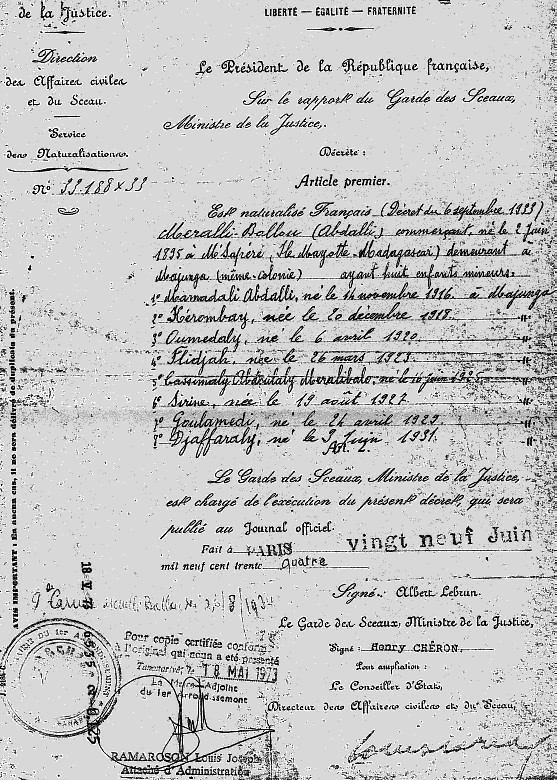 de la Justice.
Direction
des Affaires civiles
et du Sceau.
Service
des Naturalisations.
LIBERTÉ — ÉGALITÉ — FRATERNITÉ
Le Président de la République française,
Sur le rapport du Garde des Sceaux,
Ministre de la Justice,
Décrète :
Article premier.
Est naturalisé Français (Décret du 6 septembre 1933)
Meralli-Ballou (Abdalli) commerçant, né le 2 Juin
1895 à M'Sapéré, Ile Mayotte-Madagascar) demeurant à
Majunga (même colonie) ayant huit enfants mineurs:
1° Mamadali Abdalli, né le 14 novembre 1916 à Majunga
2° Kérombay, née le 20 décembre 1918. -"-
3° Oumedaly, né le 6 avril 1920. -"-
4° née le 26 mars 1923 -"-
5° né le 10 juin
6° Sirine, née le 19 août 1927. -"-
7° Goulamedi, né le 24 avril 1929. -"-
Djaffaraly, né le 3 Juin 1931. -"-
Art. 2.
Le Garde des Sceaux, Ministre de la Justice,
est chargé de l'exécution du présent décret, qui sera
publié au Journal officiel.
Fait à PARIS vingt neuf Juin
mil neuf cent trente quatre
Signé: Albert Lebrun.
Le Garde des Sceaux, Ministre de la Justice,
Signé : Henry CHÉRON.
Pour ampliation :
Le Conseiller d'Etat,
Directeur des Affaires civiles et du Sceau,
AVIS IMPORTANT : En aucun cas, il ne sera délivré de duplicata du présent.
Pour copie certifiée conforme
à l'original qui nous a été présenté
Tananarive, le 18 MAI 1973
Le Maire-Adjoint
du 1er Arrondissement
RAMAROSON Louis Joseph
Attaché d'Administration